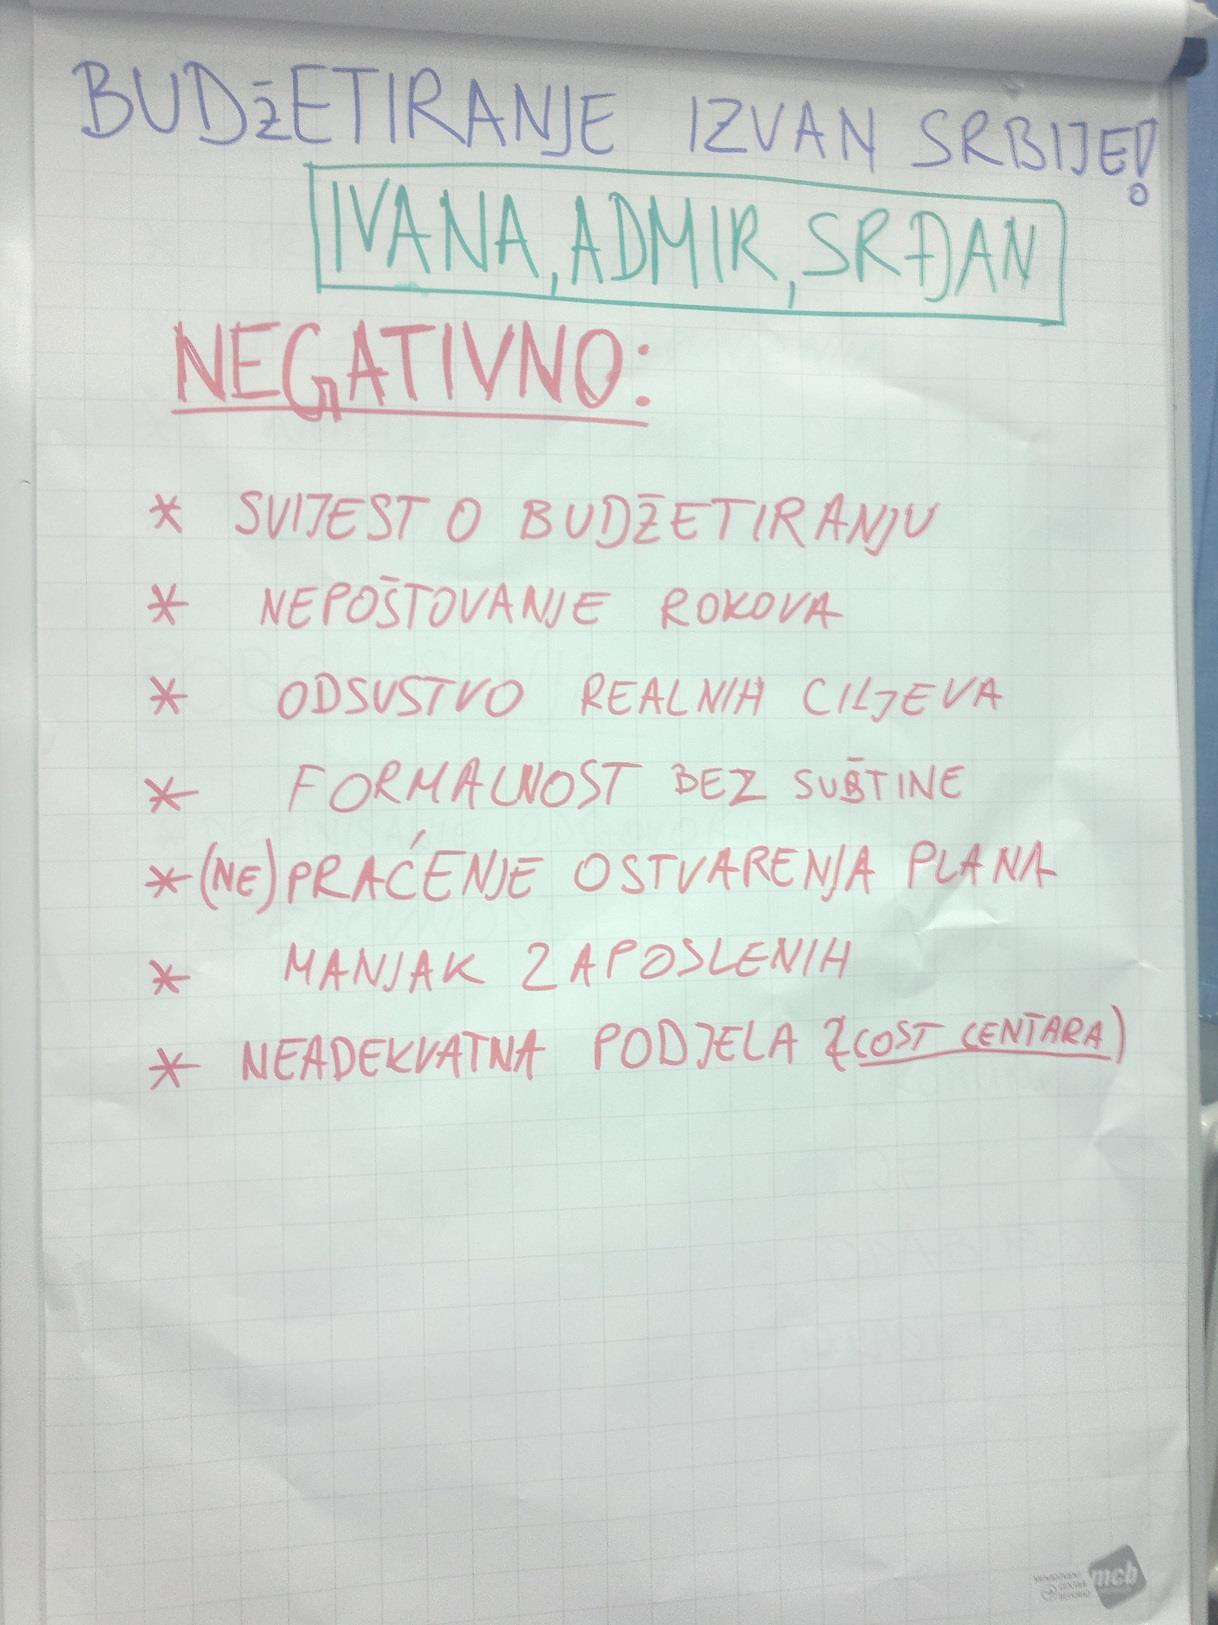 BUDŽETIRANJE IZVAN SRBIJE!
IVANA, ADMIR, SRĐAN
NEGATIVNO:
* SVIJEST O BUDŽETIRANJU
* NEPOŠTOVANJE ROKOVA
* ODSUSTVO REALNIH CILJEVA
* FORMALNOST BEZ SUŠTINE
* (NE)PRAĆENJE OSTVARENJA PLANA
* MANJAK ZAPOSLENIH
* NEADEKVATNA PODJELA (COST CENTARA)
mcb